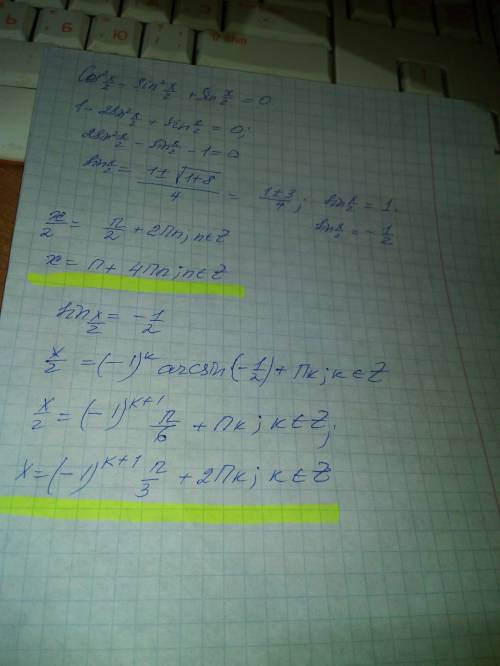 cos² x/2 - sin² x/2 + sin x/2 = 0
1 - 2sin² x/2 + sin x/2 = 0;
2sin² x/2 - sin x/2 - 1 = 0
sin x/2 = (1 ± √(1+8))/4 = (1±3)/4; sin x/2 = 1.
sin x/2 = -1/2
x/2 = π/2 + 2πn; n∈Z
x = π + 4πn; n∈Z
sin x/2 = -1/2
x/2 = (-1)^k arcsin(-1/2) + πk; k∈Z
x/2 = (-1)^(k+1) π/6 + πk; k∈Z;
x = (-1)^(k+1) π/3 + 2πk; k∈Z